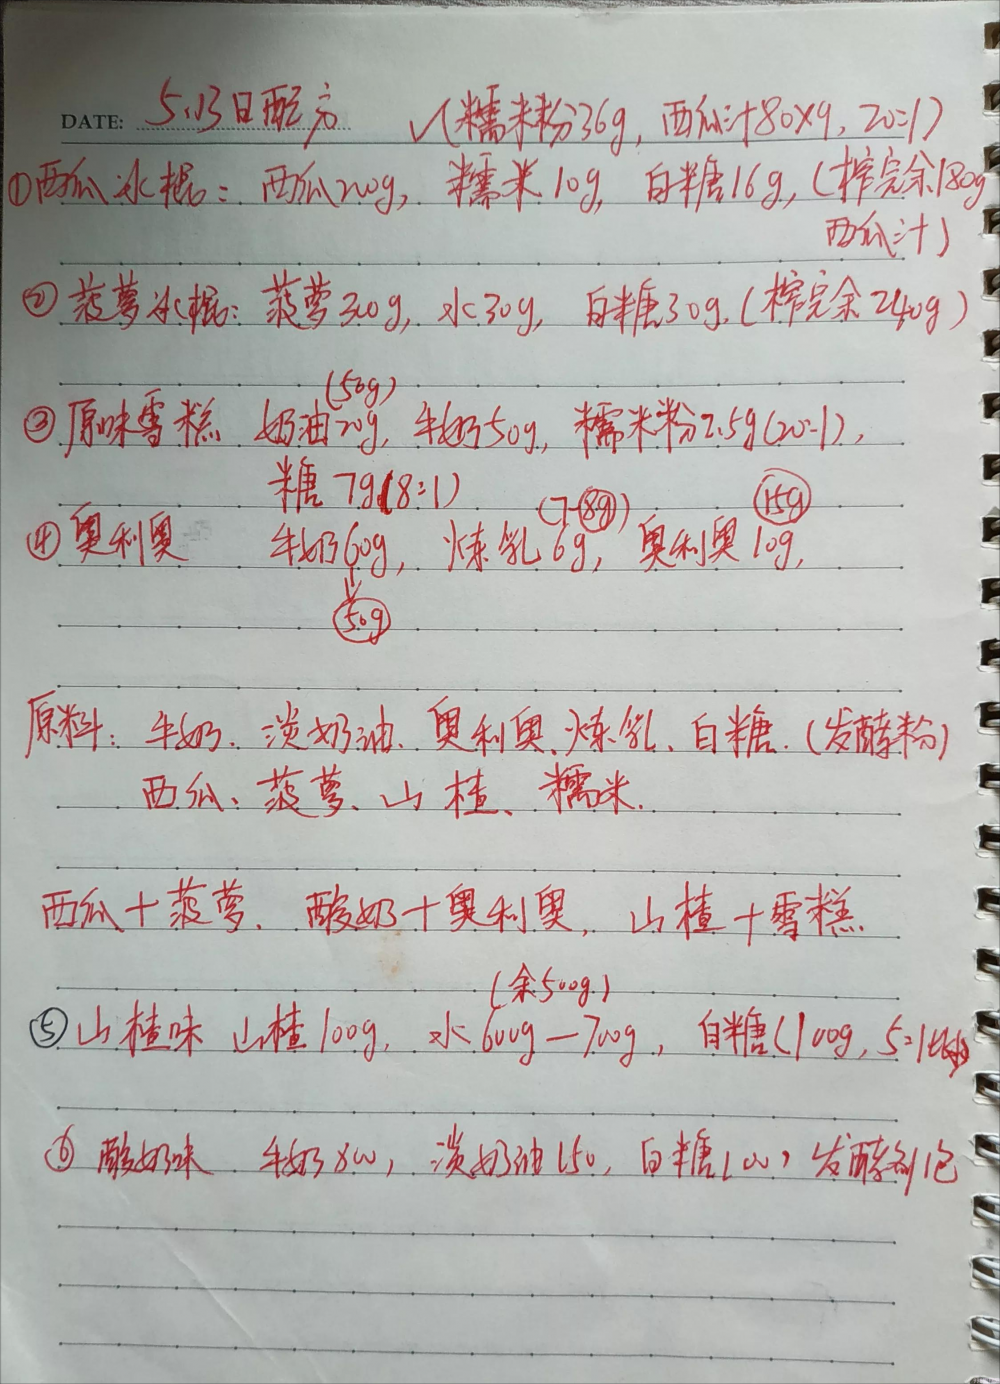 DATE: 5.13日配方
√(糯米粉36g, 西瓜汁80×9, 20:1)
①西瓜冰棍: 西瓜200g, 糯米10g, 白糖16g, (榨完余180g
西瓜汁)
②菠萝冰棍: 菠萝300g, 水30g, 白糖30g, (榨完余240g)
(50g)
③原味雪糕 奶油20g, 牛奶50g, 糯米粉2.5g(20:1),
糖7g(8:1)
(7-8g) 15g
④奥利奥 牛奶60g, 炼乳6g, 奥利奥10g,
50g
原料: 牛奶、淡奶油、奥利奥、炼乳、白糖、(发酵粉)
西瓜、菠萝、山楂、糯米.
西瓜+菠萝、酸奶+奥利奥, 山楂+雪糕
(余500g.)
⑤山楂味 山楂100g, 水600g—700g, 白糖(100g, 5:1
⑥酸奶味 牛奶800, 淡奶油150, 白糖100, 发酵剂1包